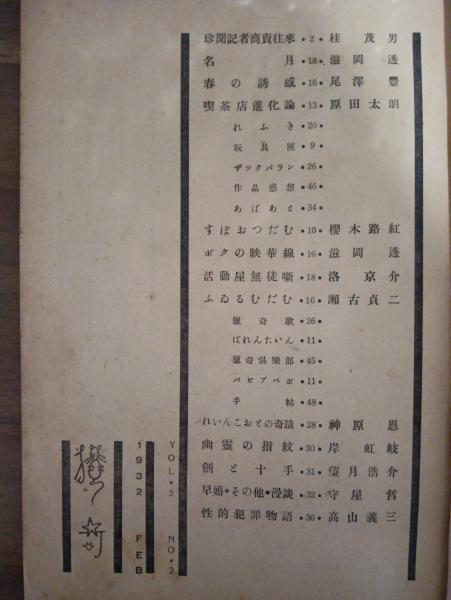 珍聞記者商賣往來•2•桂茂男
名月•18•滋岡透
春の誘惑•16•尾澤豐
喫茶店進化論•13•原田太朗
れふき•20•
玩具匣•9•
ザックバラン•26•
作品感想•46•
あばあと•34•
すぽおつだむ•10•櫻木路紅
ボクの映華線•16•滋岡透
活動屋無徒噺•18•洛京介
ふゐるむだむ•16•瀬古貞二
獵奇歌•26•
ばれんたいん•11•
獵奇倶樂部•45•
パピプペポ•11•
手帖•48•
れいんこおとの奇蹟•28•神原恩
幽靈の指紋•30•岸虹岐
劍と十手•31•望月浩介
早婚•その他•漫談•32•守屋哲
性的犯罪物語•36•高山義三
VOL•5 NO•2
1932 FEB
獵奇